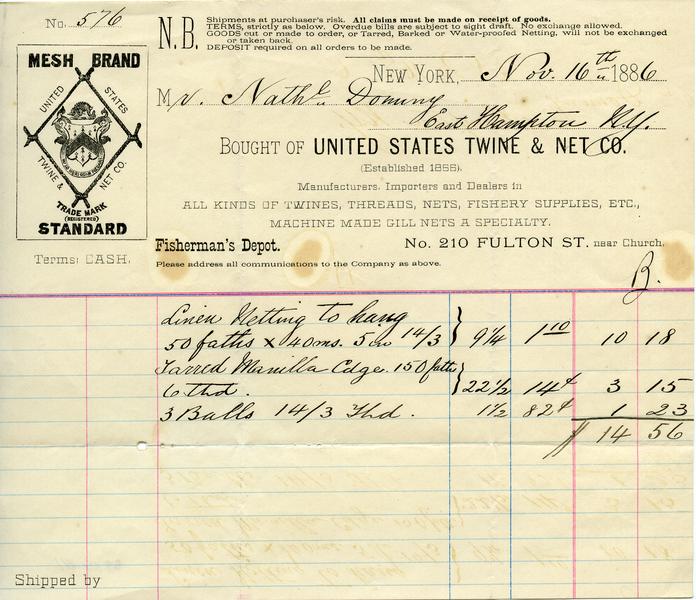 No. 576
N.B. Shipments at purchaser's risk. All claims must be made on receipt of goods.
TERMS, strictly as below. Overdue bills are subject to sight draft. No exchange allowed.
GOODS cut or made to order, or Tarred, Barked or Water-proofed Netting, will not be exchanged
or taken back.
DEPOSIT required on all orders to be made.
MESH BRAND
UNITED STATES
TWINE & NET CO.
TRADE MARK
(REGISTERED)
STANDARD
Terms: CASH.
NEW YORK, Nov. 16th 1886
Mr. Nathl. Dominy
East Hampton N.Y.
BOUGHT OF UNITED STATES TWINE & NET CO.
(Established 1855).
Manufacturers, Importers and Dealers in
ALL KINDS OF TWINES, THREADS, NETS, FISHERY SUPPLIES, ETC.,
MACHINE MADE GILL NETS A SPECIALTY.
Fisherman's Depot. No. 210 FULTON ST. near Church.
Please address all communications to the Company as above.
B.
Linen Netting to hang
50 faths x 40 ms. 5 in 14/3 } 9 1/4 1 10 10 18
Tarred Manilla Edge 150 faths
6 thd. } 22 1/2 14¢ 3 15
3 Balls 14/3 Thd. 1 1/2 82¢ 1 23
$ 14 56
Shipped by